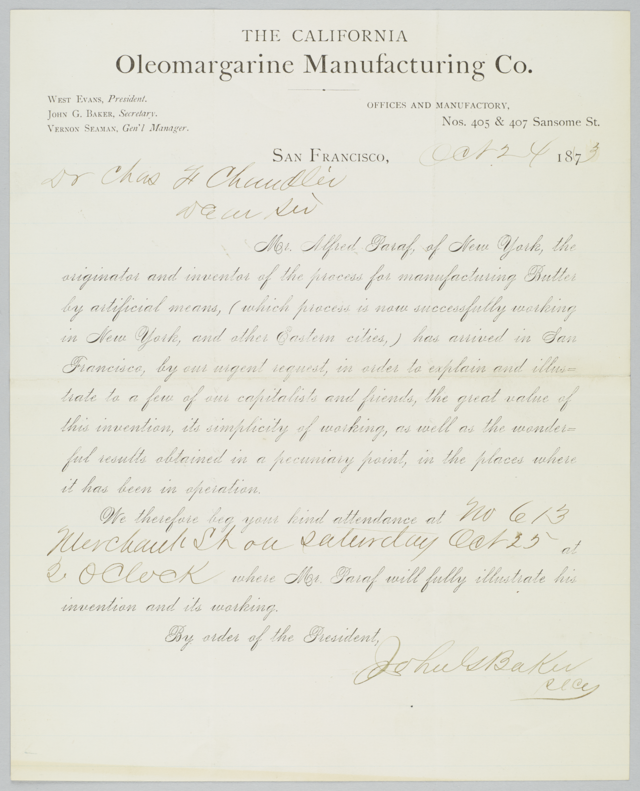 THE CALIFORNIA
Oleomargarine Manufacturing Co.
WEST EVANS, President.
JOHN G. BAKER, Secretary.
VERNON SEAMAN, Gen'l Manager.
OFFICES AND MANUFACTORY,
Nos. 405 & 407 Sansome St.
SAN FRANCISCO, Oct 24 1873
Dr Chas F Chandler
Dear Sir
Mr. Alfred Paraf, of New York, the
originator and inventor of the process for manufacturing Butter
by artificial means, (which process is now successfully working
in New York, and other Eastern cities,) has arrived in San
Francisco, by our urgent request, in order to explain and illus=
trate to a few of our capitalists and friends, the great value of
this invention, its simplicity of working, as well as the wonder=
ful results obtained in a pecuniary point, in the places where
it has been in operation.
We therefore beg your kind attendance at No 613
Merchant St on Saturday Oct 25 at
2 O'Clock where Mr. Paraf will fully illustrate his
invention and its working.
By order of the President,
John G Baker
Secy